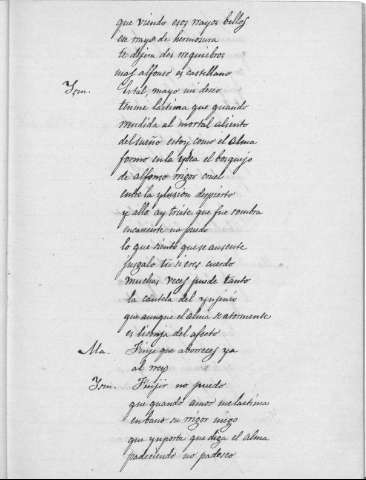 que viendo esos rayos bellos
en rayos de hermosura
te dijera dos requiebros
mas Alfonso es castellano
Ysm. Vital, mayo mi deseo
tenme lastima que quando
rendida al mortal aliento
del sueño estoy como el alma
formo en la ydea el bosquejo
de Alfonso rigor cruel
entre la ylusion despierto
y allo ay triste que fue sombra
encarecerte no puedo
lo que siento que se ausente
juzgalo tu si eres cuerdo
muchas veces puede tanto
la cautela del yngenio
que aunque el alma se atormente
es lisonja del afecto
Ma. Finje que aborreces ya
al rey
Ysm. Finjir no puedo
que quando amor me lastima
en bano su rigor niego
que ynporta que diga el alma
padeciendo no padesco